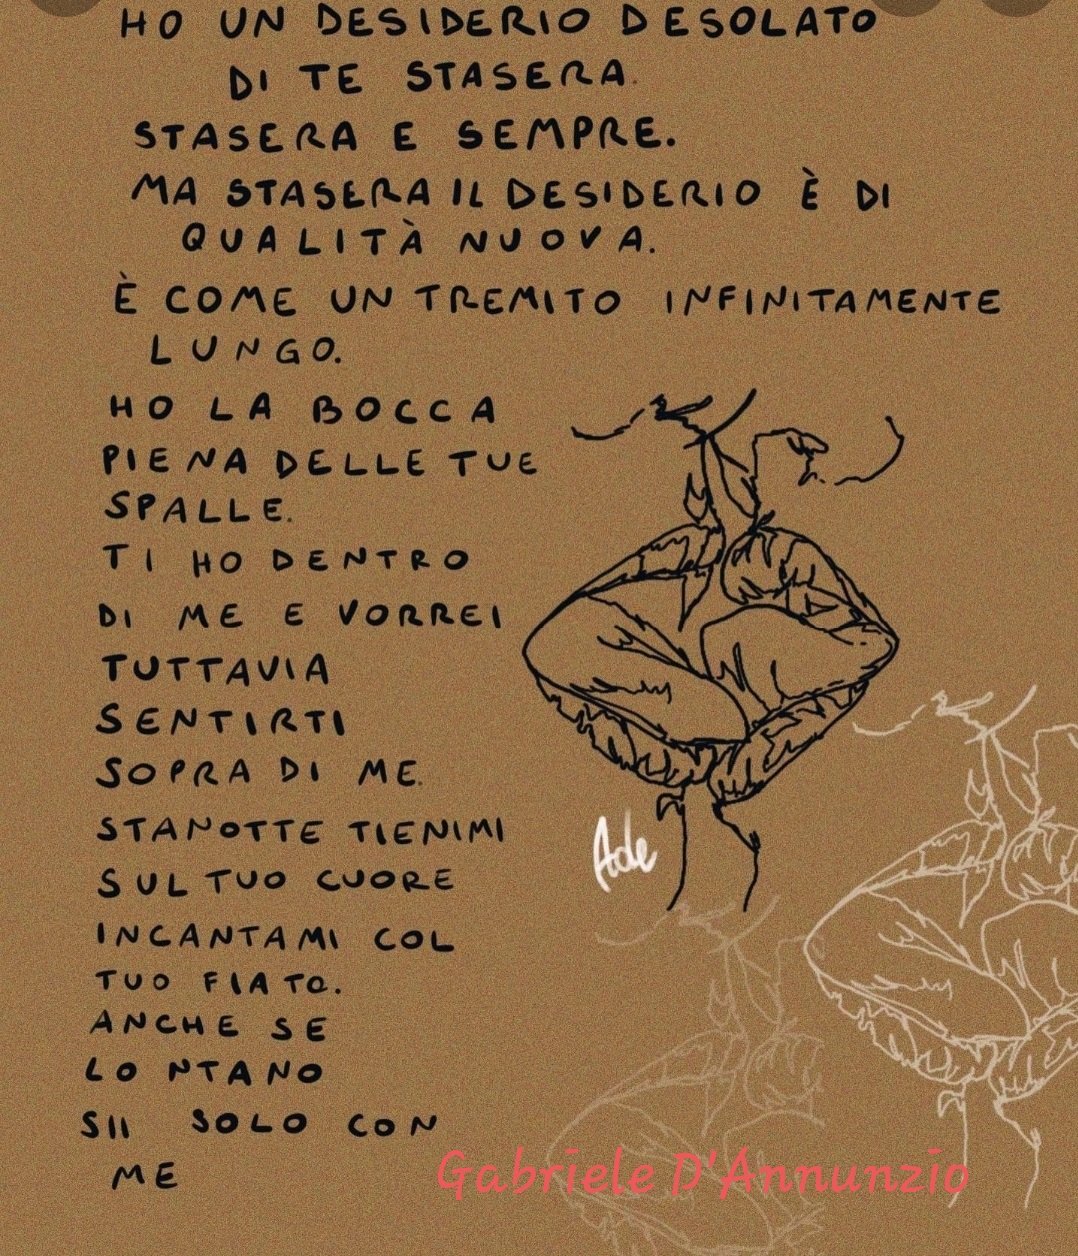 HO UN DESIDERIO DESOLATO
DI TE STASERA.
STASERA E SEMPRE.
MA STASERA IL DESIDERIO È DI
QUALITÀ NUOVA.
È COME UN TREMITO INFINITAMENTE
LUNGO.
HO LA BOCCA
PIENA DELLE TUE
SPALLE.
TI HO DENTRO
DI ME E VORREI
TUTTAVIA
SENTIRTI
SOPRA DI ME.
STANOTTE TIENIMI
SUL TUO CUORE
INCANTAMI COL
TUO FIATO.
ANCHE SE
LONTANO
SII SOLO CON
ME
Ade
Gabriele D'Annunzio